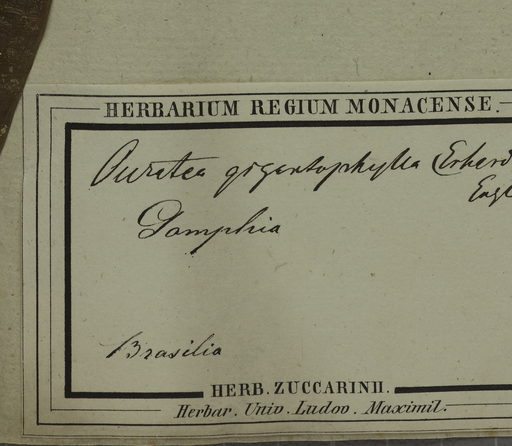 HERBARIUM REGIUM MONACENSE.
Ouratea gigantophylla (Erhard
Engl
Gomphia
Brasilia
HERB. ZUCCARINII.
Herbar. Univ. Ludov. Maximil.